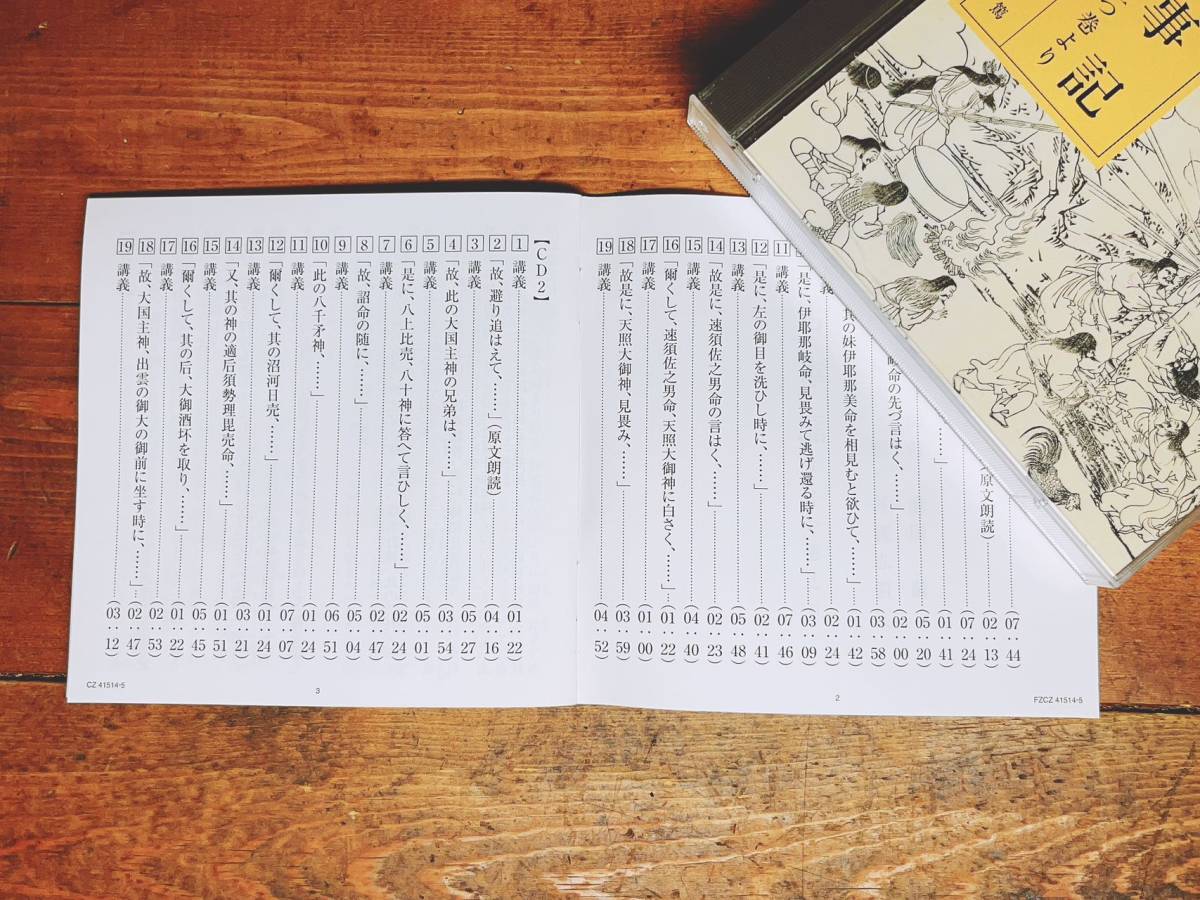 事記
つ巻より
篤
(07:44)
原文朗読)(02:13)
(07:24)
……」(01:41)
(05:20)
岐命の先づ言はく、……」(02:00)
(03:58)
其の妹伊耶那美命を相見むと欲ひて、……」(01:42)
講義(02:24)
「是に、伊耶那岐命、見畏みて逃げ還る時に、……」(03:09)
11 講義(07:46)
12 「是に、左の御目を洗ひし時に、……」(02:41)
13 講義(05:48)
14 「故是に、速須佐之男命の言はく、……」(02:23)
15 講義(04:40)
16 「爾くして、速須佐之男命、天照大御神に白さく、……」(01:22)
17 講義(01:00)
18 「故是に、天照大御神、見畏み、……」(03:59)
19 講義(04:52)
2
FZCZ 41514-5
【CD2】
1 講義(01:22)
2 「故、避り追はえて、……」(原文朗読)(04:16)
3 講義(05:27)
4 「故、此の大国主神の兄弟は、……」(03:54)
5 講義(05:01)
6 「是に、八上比売、八十神に答へて言ひしく、……」(02:24)
7 講義(02:47)
8 「故、詔命の随に、……」(05:04)
9 講義(06:51)
10 「此の八千矛神、……」(01:24)
11 講義(07:07)
12 「爾くして、其の沼河日売、……」(01:24)
13 講義(03:21)
14 「又、其の神の適后須勢理毘売命、……」(01:51)
15 講義(05:45)
16 「爾くして、其の后、大御酒坏を取り、……」(01:22)
17 講義(02:53)
18 「故、大国主神、出雲の御大の御前に坐す時に、……」(02:47)
19 講義(03:12)
3
CZ 41514-5